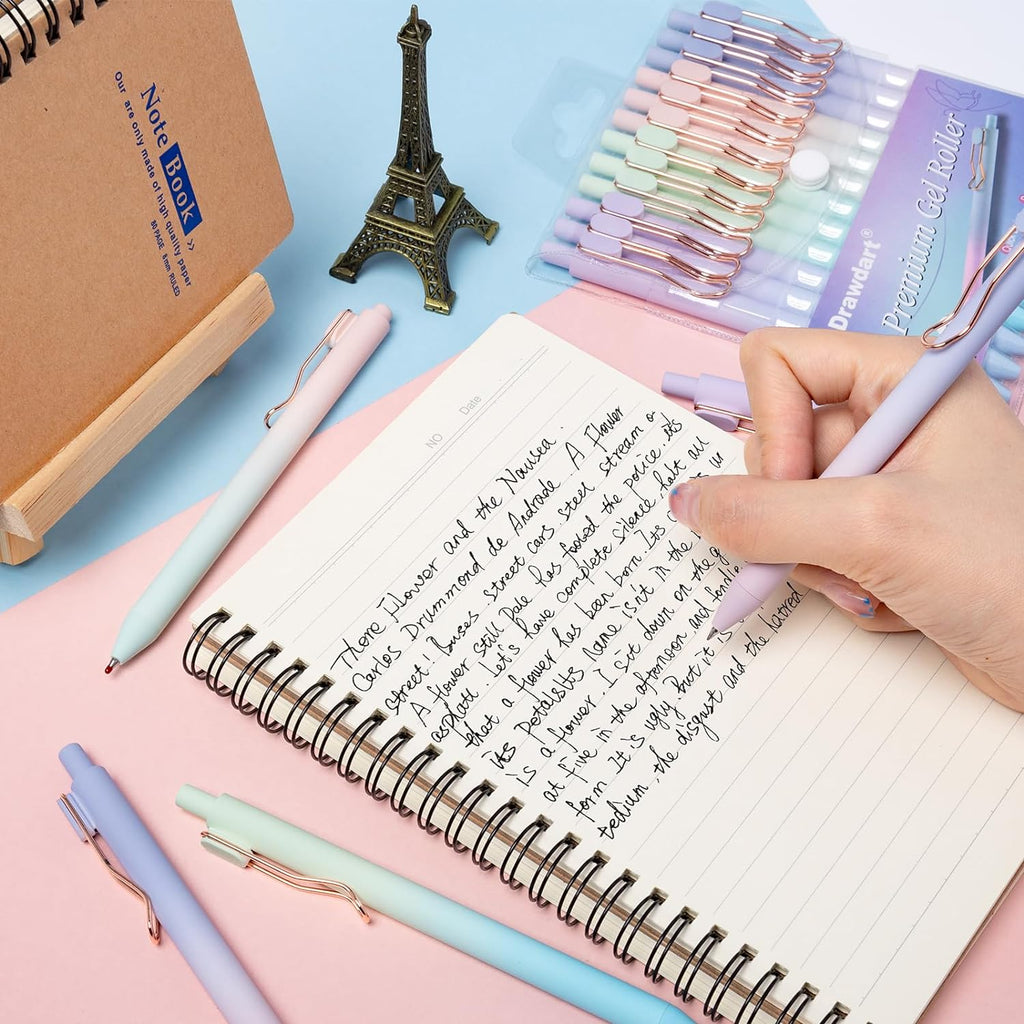 Note Book >>
Our are only made of high quality paper
80 PAGE 8mm RULED
Drawdart®
Premium Gel Roller
NO Date
There Flower and the Nausea.
Carlos Drummond de Andrade A Flower
street! Buses street cars steel stream o
A flower still pale has fooled the police. its
asphalt. Let's have complete silence halt all
that a flower has been born. Its
its Petalsits name isit in the
is a flower. I sit down on the g
at five in the afternoon and fondle
form It is ugly. But it is
tedium, the disgust and the hatred